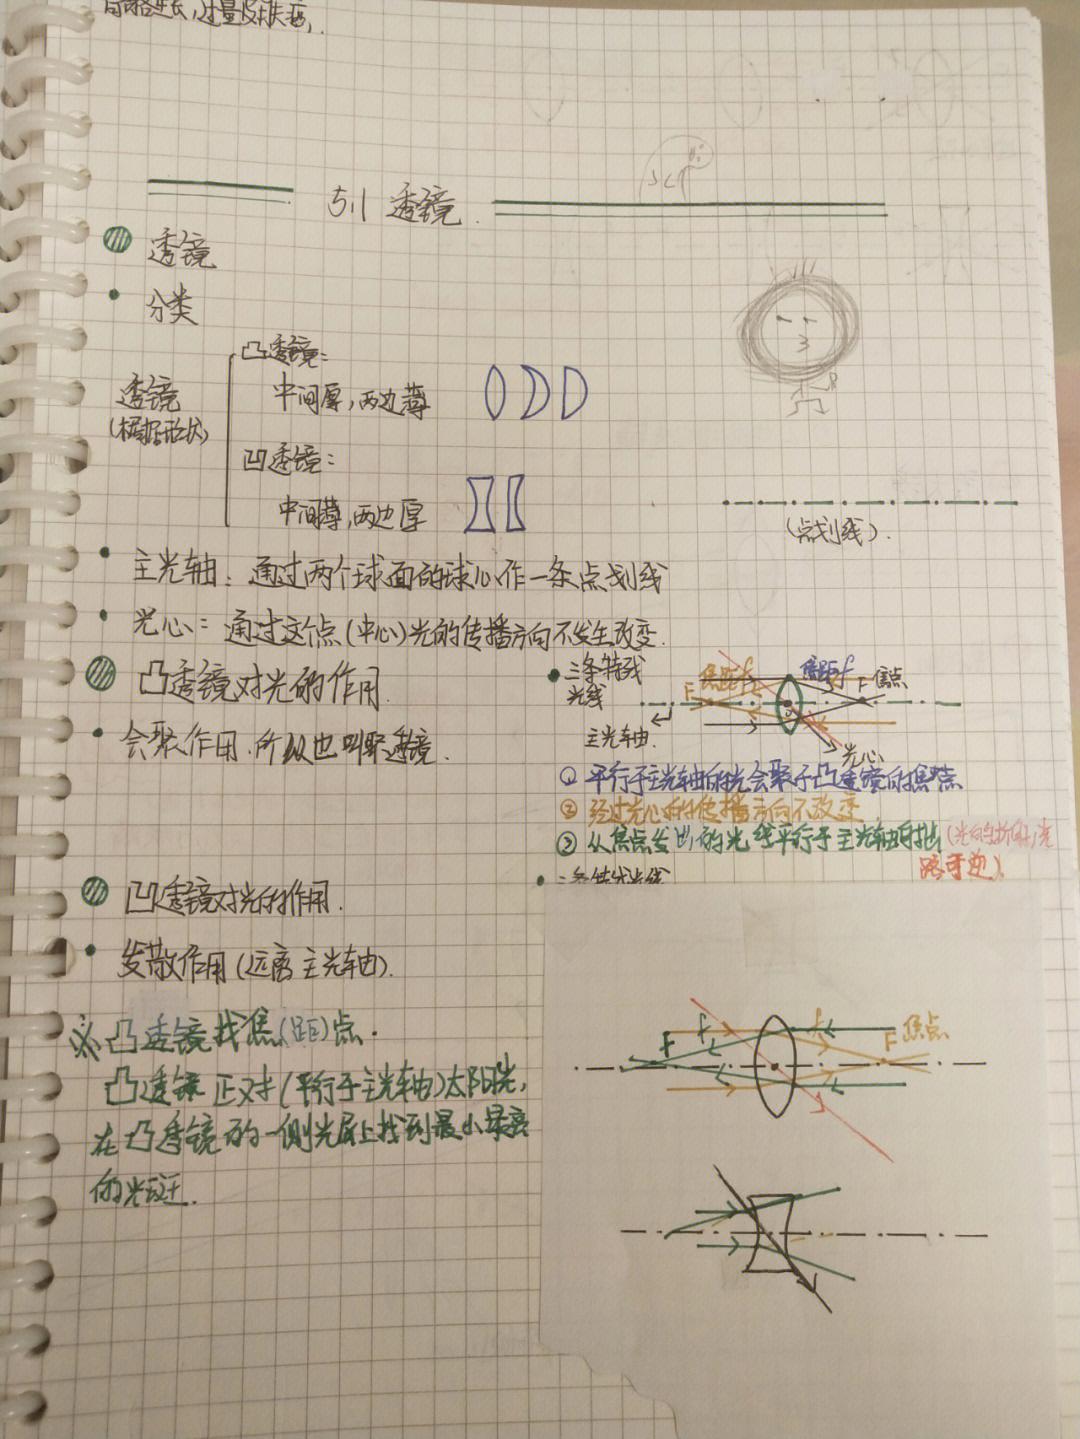 5.1 透镜
透镜
分类
凸透镜:
中间厚,两边薄
透镜
(根据形状)
凹透镜:
中间薄,两边厚
(点划线).
主光轴: 通过两个球面的球心作一条点划线
光心: 通过这个点(中心)光的传播方向不发生改变.
凸透镜对光的作用.
会聚作用.所以也叫聚透镜.
三条特殊
光线
焦距f 焦距f
F F 焦点
主光轴.
光心
① 平行于主光轴的光会聚于凸透镜的焦点
② 经过光心的传播方向不改变
③ 从焦点发出的光线平行于主光轴射出(光的折射时,光
路可逆).
凹透镜对光的作用.
三条特殊光线
发散作用(远离主光轴).
※凸透镜找焦(距)点.
凸透镜正对(平行于主光轴)太阳光,
在凸透镜的一侧光屏上找到最小最亮
的光斑.
f f 焦点
F F